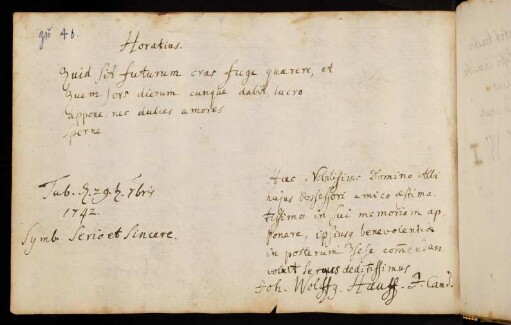 Horatius.
Quid sit futurum cras fuge quærere, et
Quem sors dierum cunque dabit lucro
appone: nec dulces amores
sperne
Tub. d. 29. 7bris
1742.
Symb. Serio et Sincere.
Haec Nobilissimo Domino Albi
hujus Possessori amico æstima
tissimo in sui memoriam ap
ponere, ipsiusq benevolentiæ
in posterum sese com̄endare
voluit servus deditissimus
Joh. Wolffg. Hauff. Cand.